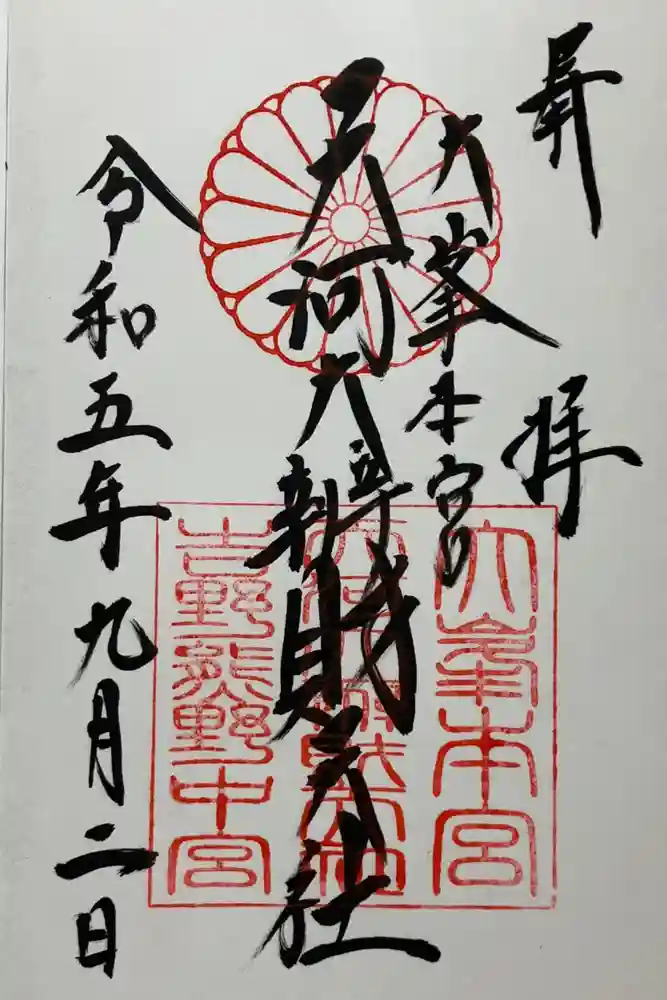 昇拝
大峯本宮
天河大辨財天社
令和五年九月二日
大峯本宮
天河大辨財天社
吉野熊野中宮